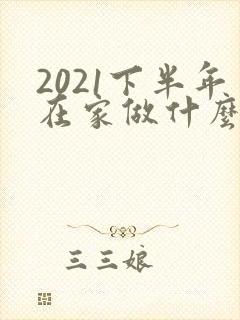 2021下半年
在家做什麼
三三娘